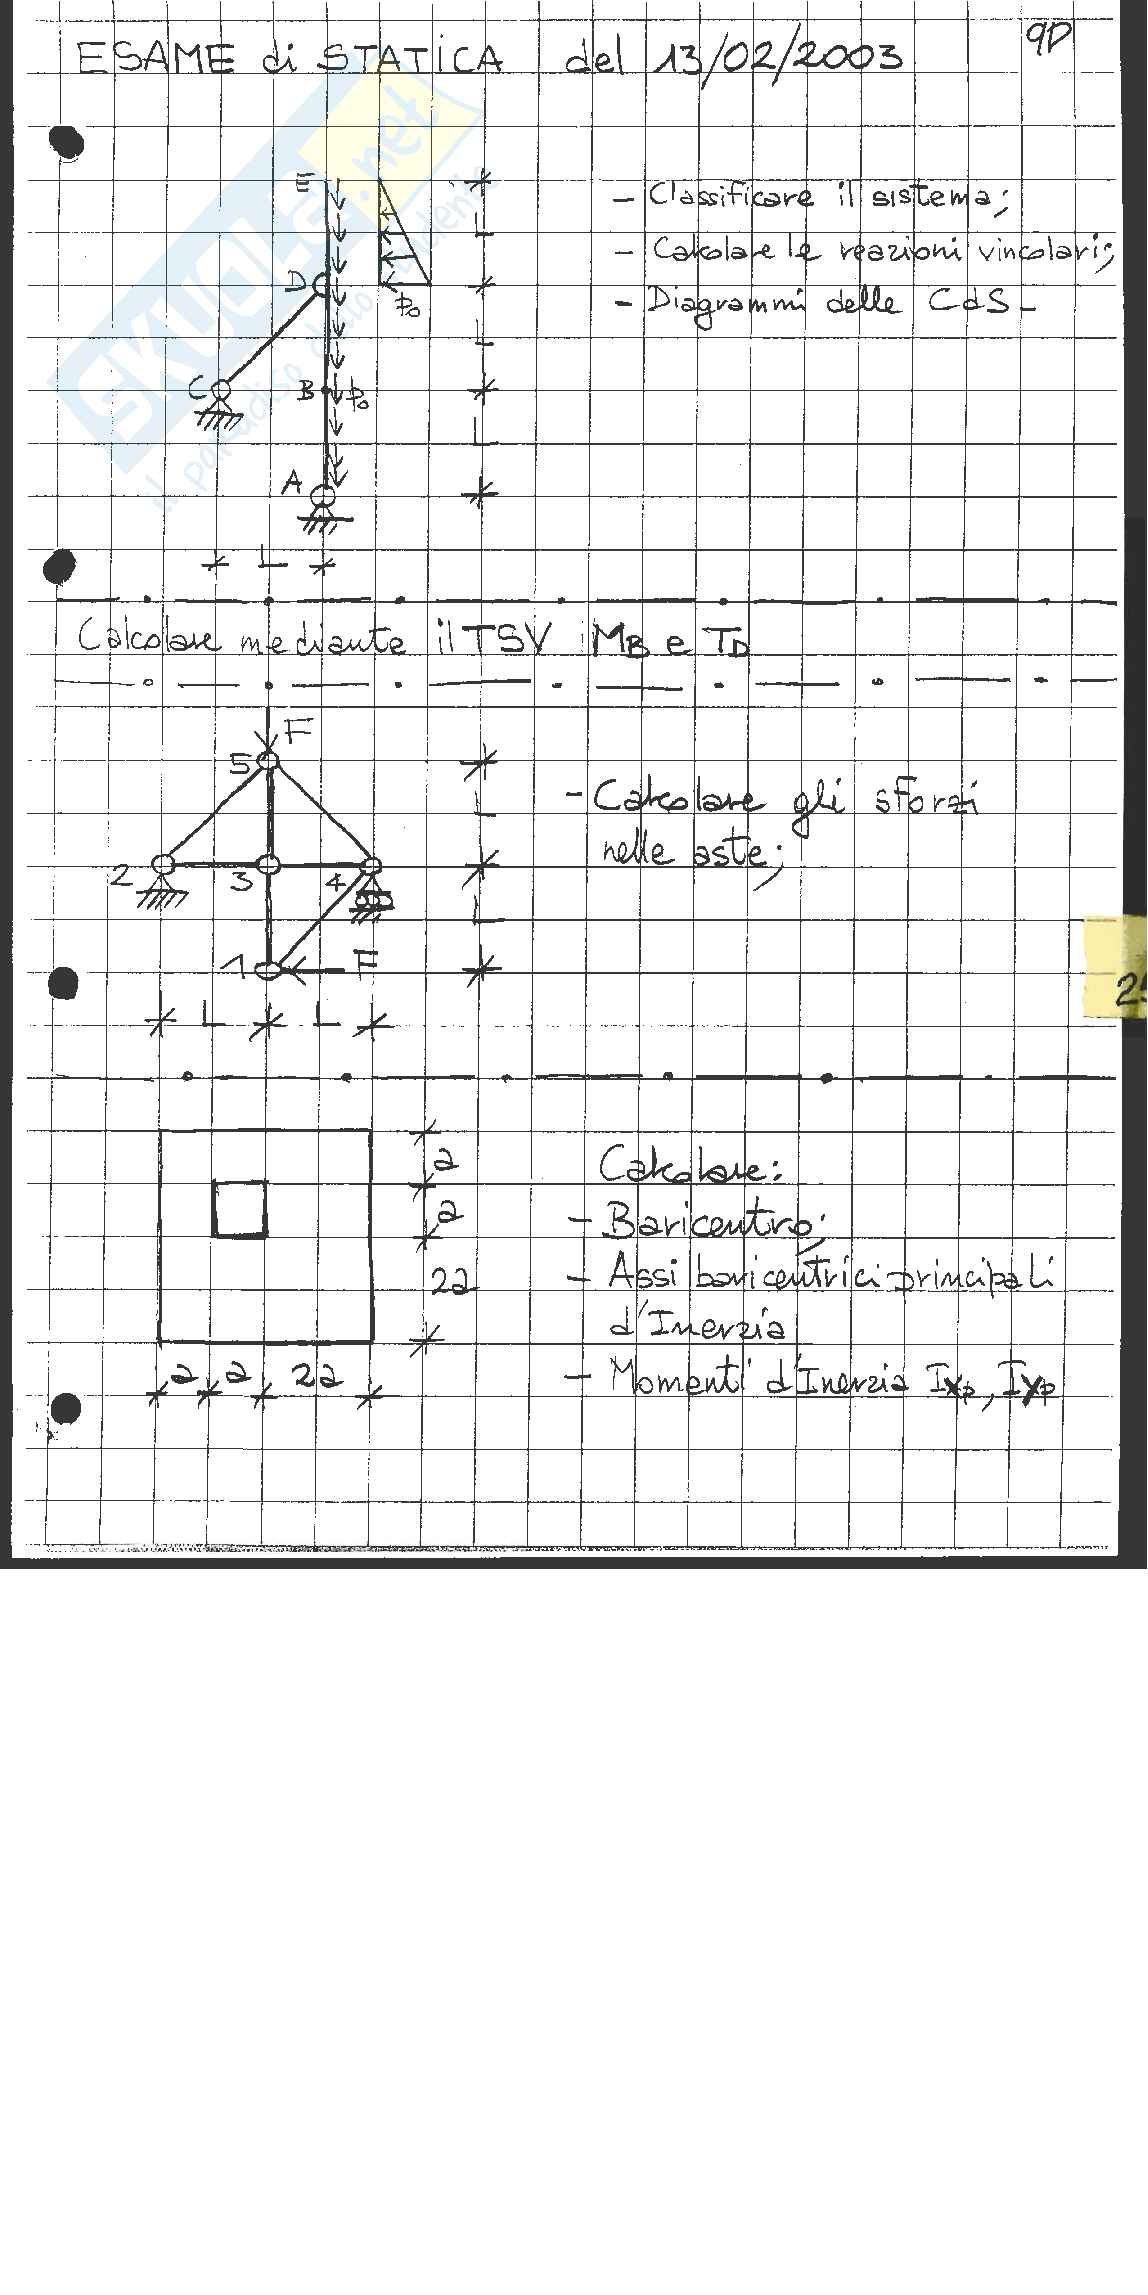 ESAME di STATICA del 13/02/2003
9D
E
D
C
B
A
p₀
p₀
L
L
L
L
- Classificare il sistema;
- Calcolare le reazioni vincolari;
- Diagrammi delle CdS-
SKUOLA.net
il paradiso dello studente
Calcolare mediante il TSV MB e TD
F
5
2
3
4
1
F
L
L
L
L
- Calcolare gli sforzi
nelle aste;
2
a
a
2a
a
a
2a
Calcolare:
- Baricentro;
- Assi baricentrici principali
d'Inerzia
- Momenti d'Inerzia Ixp, Iyp